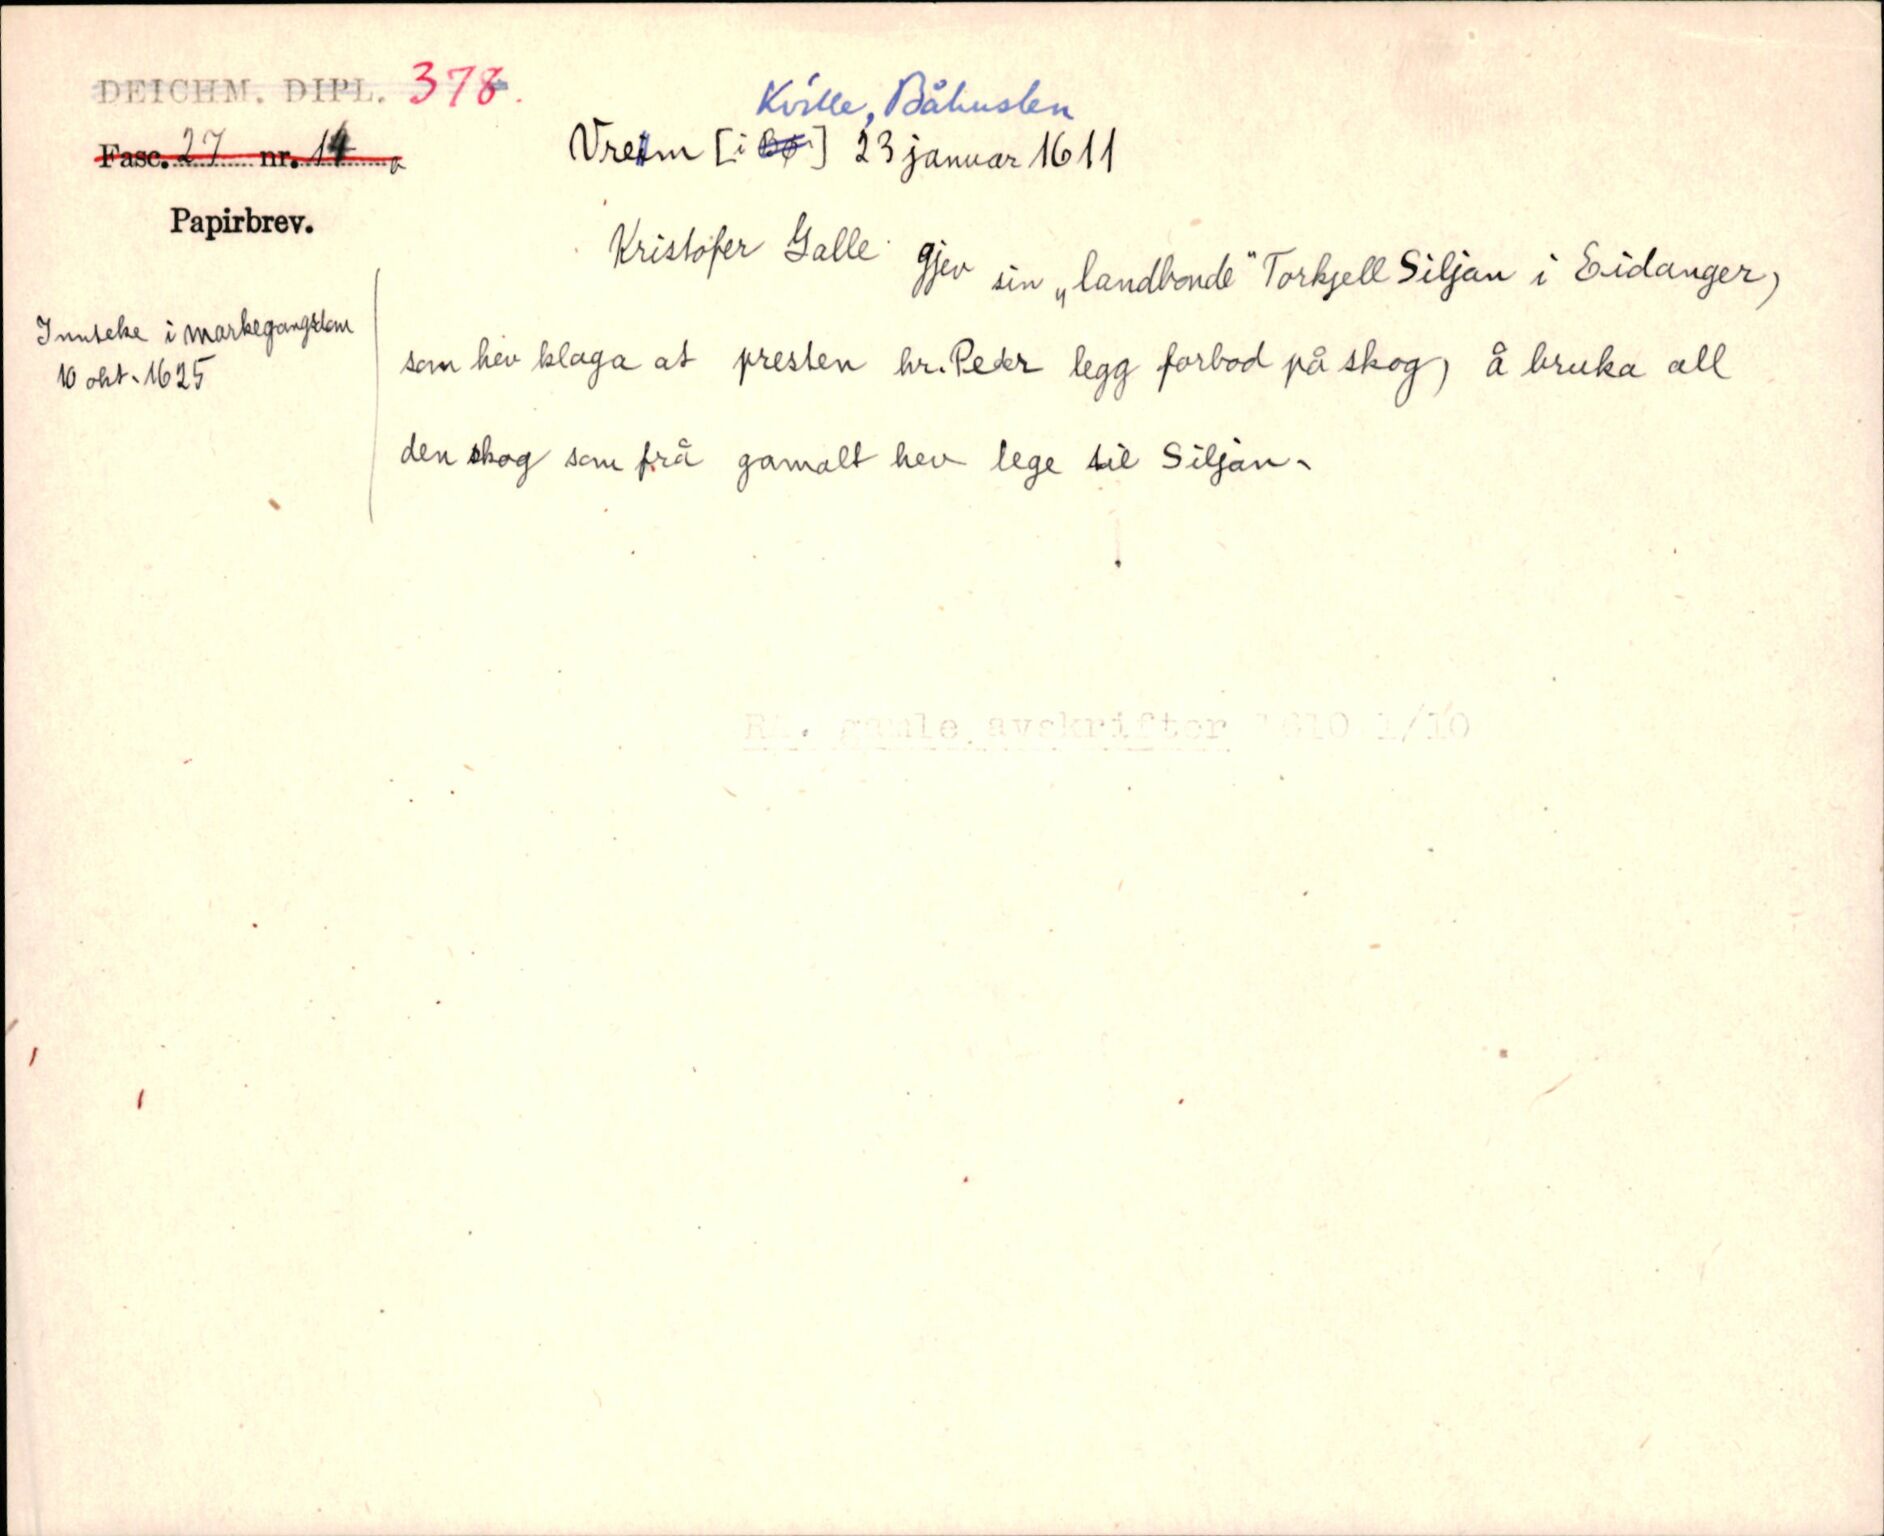 DEICHM. DIPL. 378.
Fasc. 27 nr. 14 a
Papirbrev.
Kville, Båhuslen
Vrem [i Bø] 23 januar 1611
Kristofer Galle gjev sin „landbonde" Torkjell Siljan i Eidanger,
som hev klaga at presten hr. Peder legg forbod på skog, å bruka all
den skog som frå gamalt hev lege til Siljan.
Innteke i markegangsdom
10 okt. 1625
RA. gamle avskrifter 1610 1/10